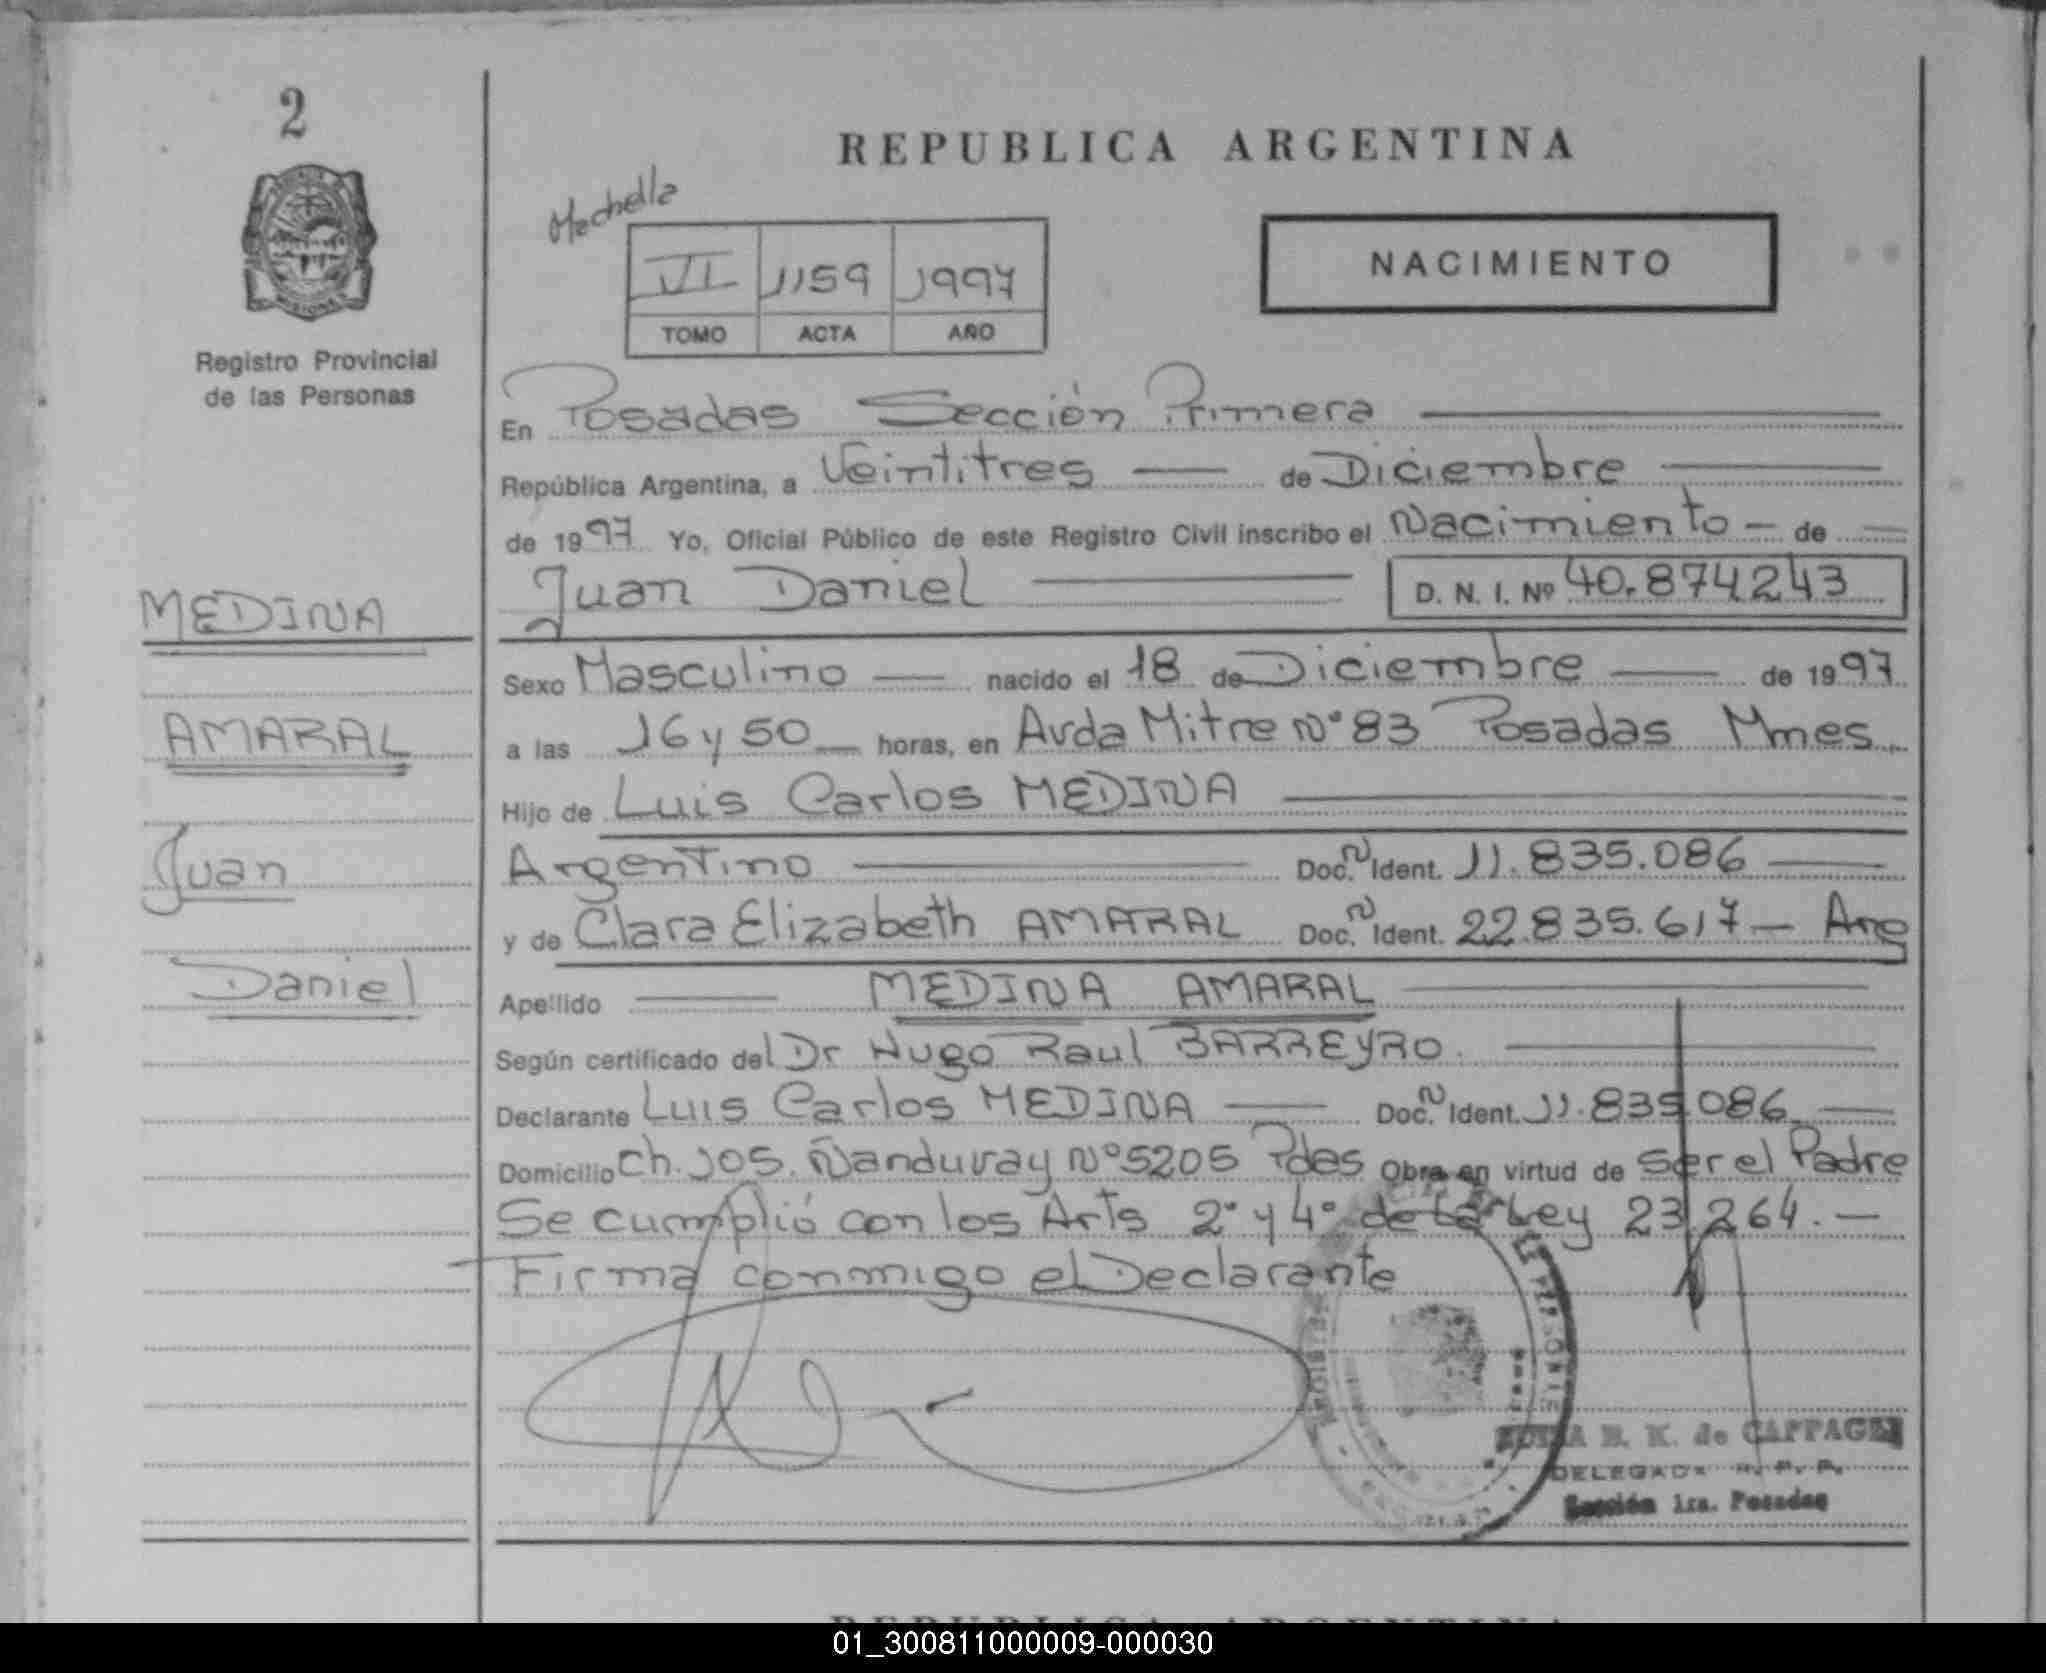 2
REPUBLICA ARGENTINA
Mochella
NACIMIENTO
VI 1159 1997
TOMO ACTA AÑO
Registro Provincial
de las Personas
En Posadas Sección Primera
República Argentina, a Veintitres de Diciembre
de 1997 Yo, Oficial Público de este Registro Civil inscribo el Nacimiento de
Juan Daniel D. N. I. Nº 40.874243
MEDINA
AMARAL
Juan
Daniel
Sexo Masculino nacido el 18 de Diciembre de 1997
a las 16 y 50 horas, en Avda Mitre Nº 83 Posadas Mnes
Hijo de Luis Carlos MEDINA
Argentino Doc. N Ident. 11.835.086
y de Clara Elizabeth AMARAL Doc. N Ident. 22.835.617 - Arg
Apellido MEDINA AMARAL
Según certificado del Dr Hugo Raul BARREYRO.
Declarante Luis Carlos MEDINA Doc. N Ident. 11.835.086
Domicilio Ch. 105. Ñanduvay Nº 5205 Pdas Obra en virtud de ser el Padre
Se cumplió con los Arts 2º y 4º de la Ley 23.264.-
Firma conmigo el Declarante
E. K. de CAPPAGLI
DELEGADA R. P. P.
Sección 1ra. Posadas
01_300811000009-000030